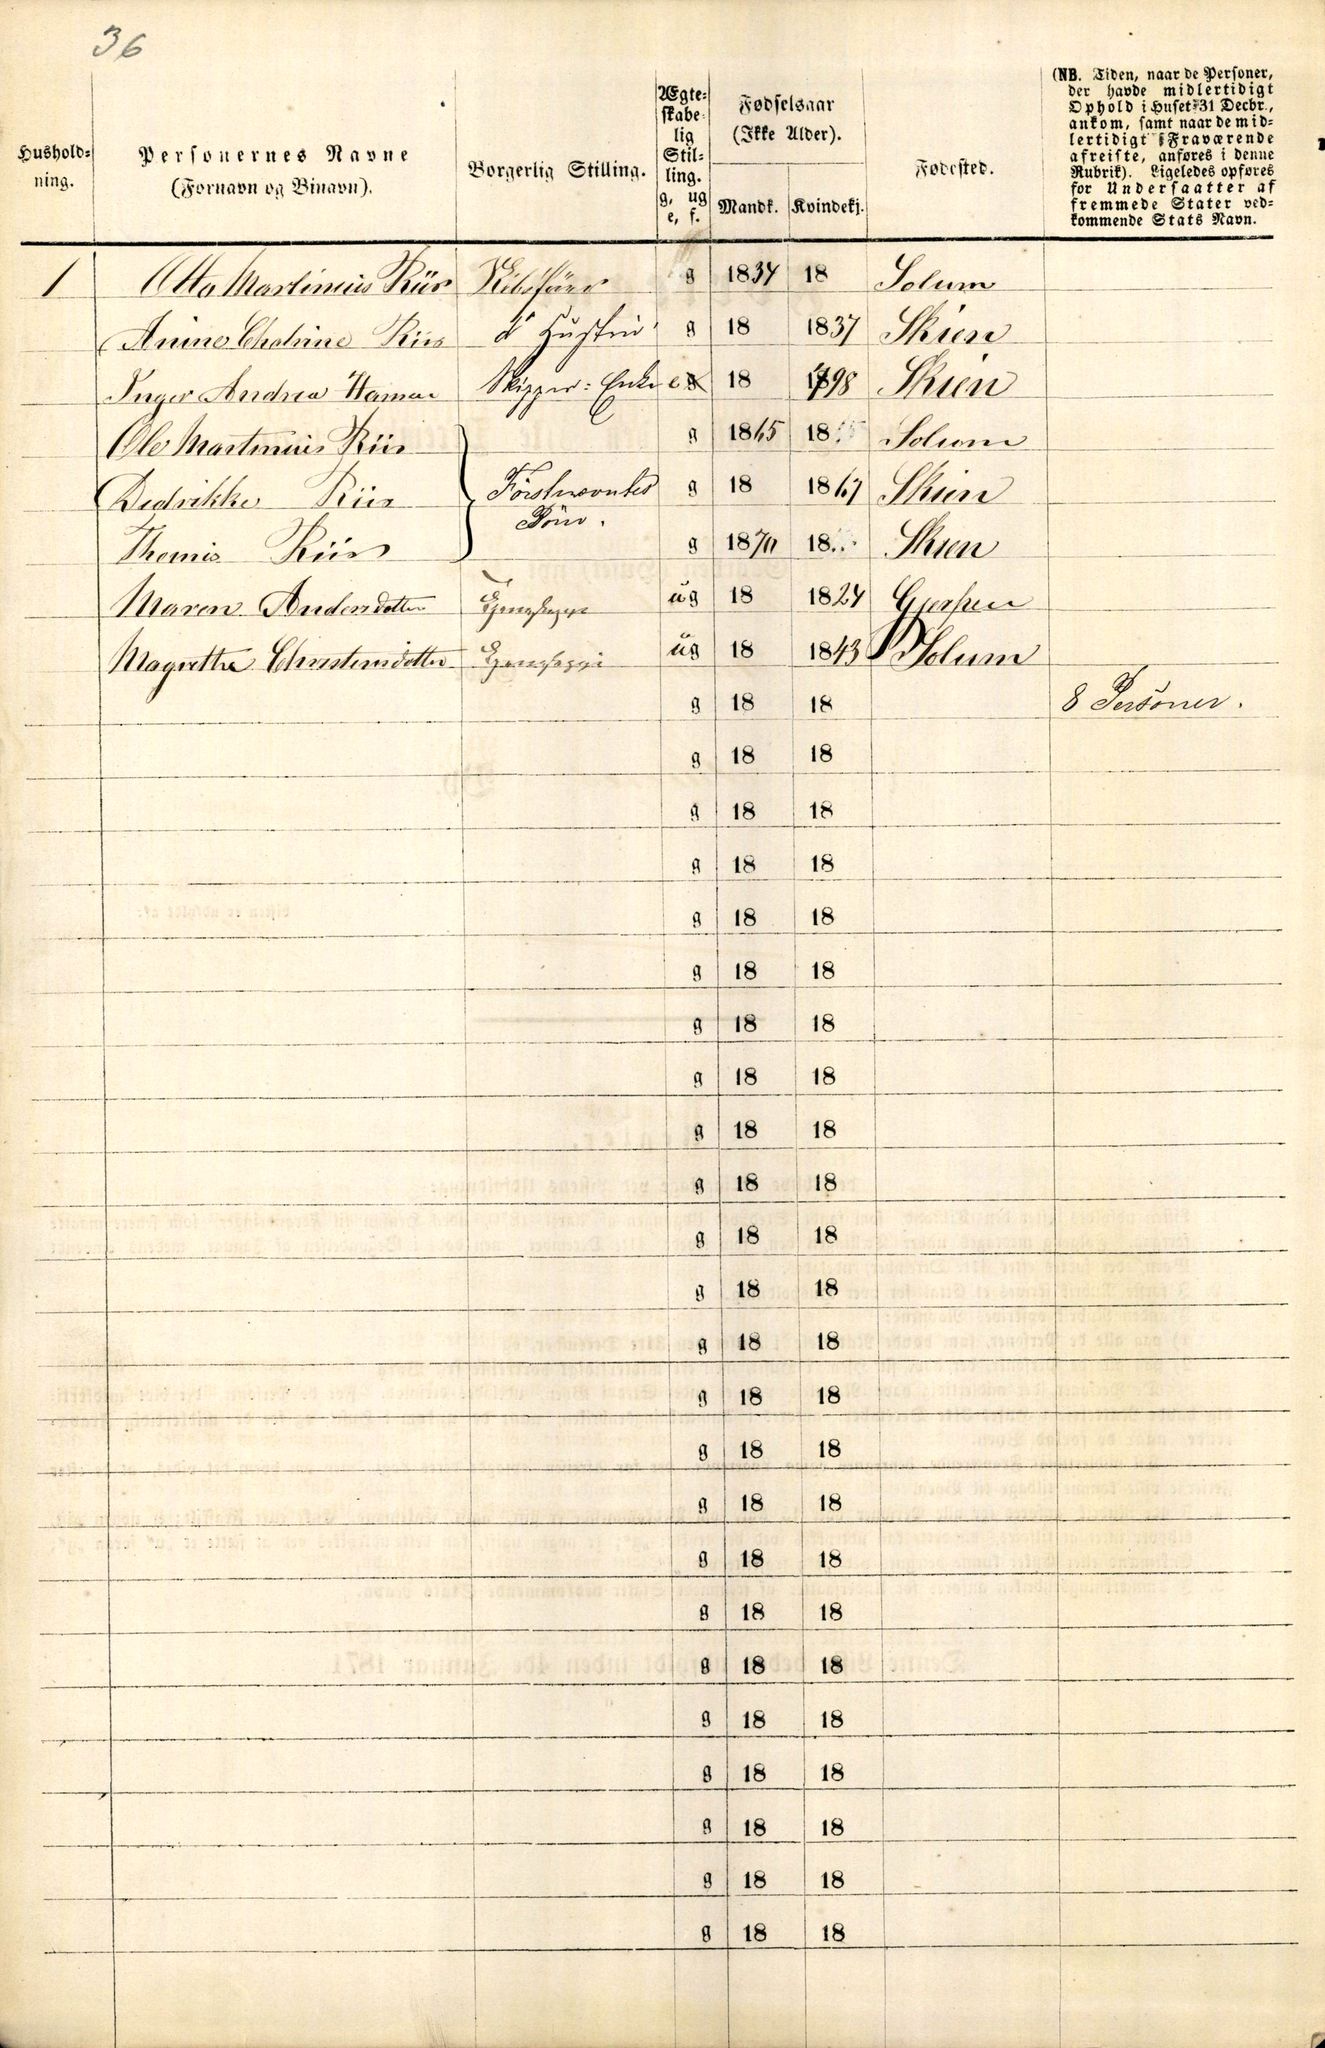 36
Hushold-
ning.
Personernes Navne
(Fornavn og Binavn).
Borgerlig Stilling.
Ægte-
skabe-
lig
Stil-
ling.
g, ug
e, f.
Fødselsaar
(Ikke Alder).
Mandk.
Kvindekj.
Fødested.
(NB. Tiden, naar de Personer,
der havde midlertidigt
Ophold i Huset 31 Decbr.,
ankom, samt naar de mid-
lertidigt Fraværende
afreiste, anføres i denne
Rubrik). Ligeledes opføres
for Undersaatter af
fremmede Stater ved-
kommende Stats Navn.
1 Otto Martinius Riis g 1834 18 Solum
Anine Riis d' Hustru g 18 1837 Skien
Inger Andrea Skipper: Enke e g 18 1798 Skien
Ole Martinius Riis g 1865 18 Solum
Dedrikke Riis g 18 1867 Skien
Børn.
Riis g 1870 18 Skien
Maren Andersdatter ug 18 1824 Gjerpen
Magrethe Christensdatter ug 18 1843 Solum
g 18 18 8 Personer.
g 18 18
g 18 18
g 18 18
g 18 18
g 18 18
g 18 18
g 18 18
g 18 18
g 18 18
g 18 18
g 18 18
g 18 18
g 18 18
g 18 18
g 18 18
g 18 18
g 18 18
g 18 18
g 18 18
g 18 18
g 18 18
g 18 18
g 18 18